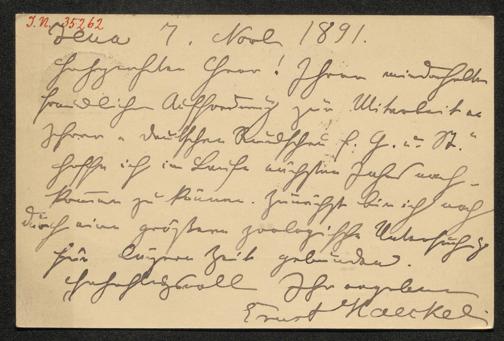 J.N. 35262
Jena 7. Novb 1891.
Hochgeehrter Herr! Ihrer wiederholten
freundlichen Aufforderung zur Mitarbeit an
Ihrer „Deutschen Rundschau f. G. u. St."
hoffe ich im Laufe nächsten Jahres nach-
kommen zu können. Zunächst bin ich noch
durch eine größere zoologische Untersuchg
für längere Zeit gebunden.
Hochachtungsvoll Ihr ergebener
Ernst Haeckel